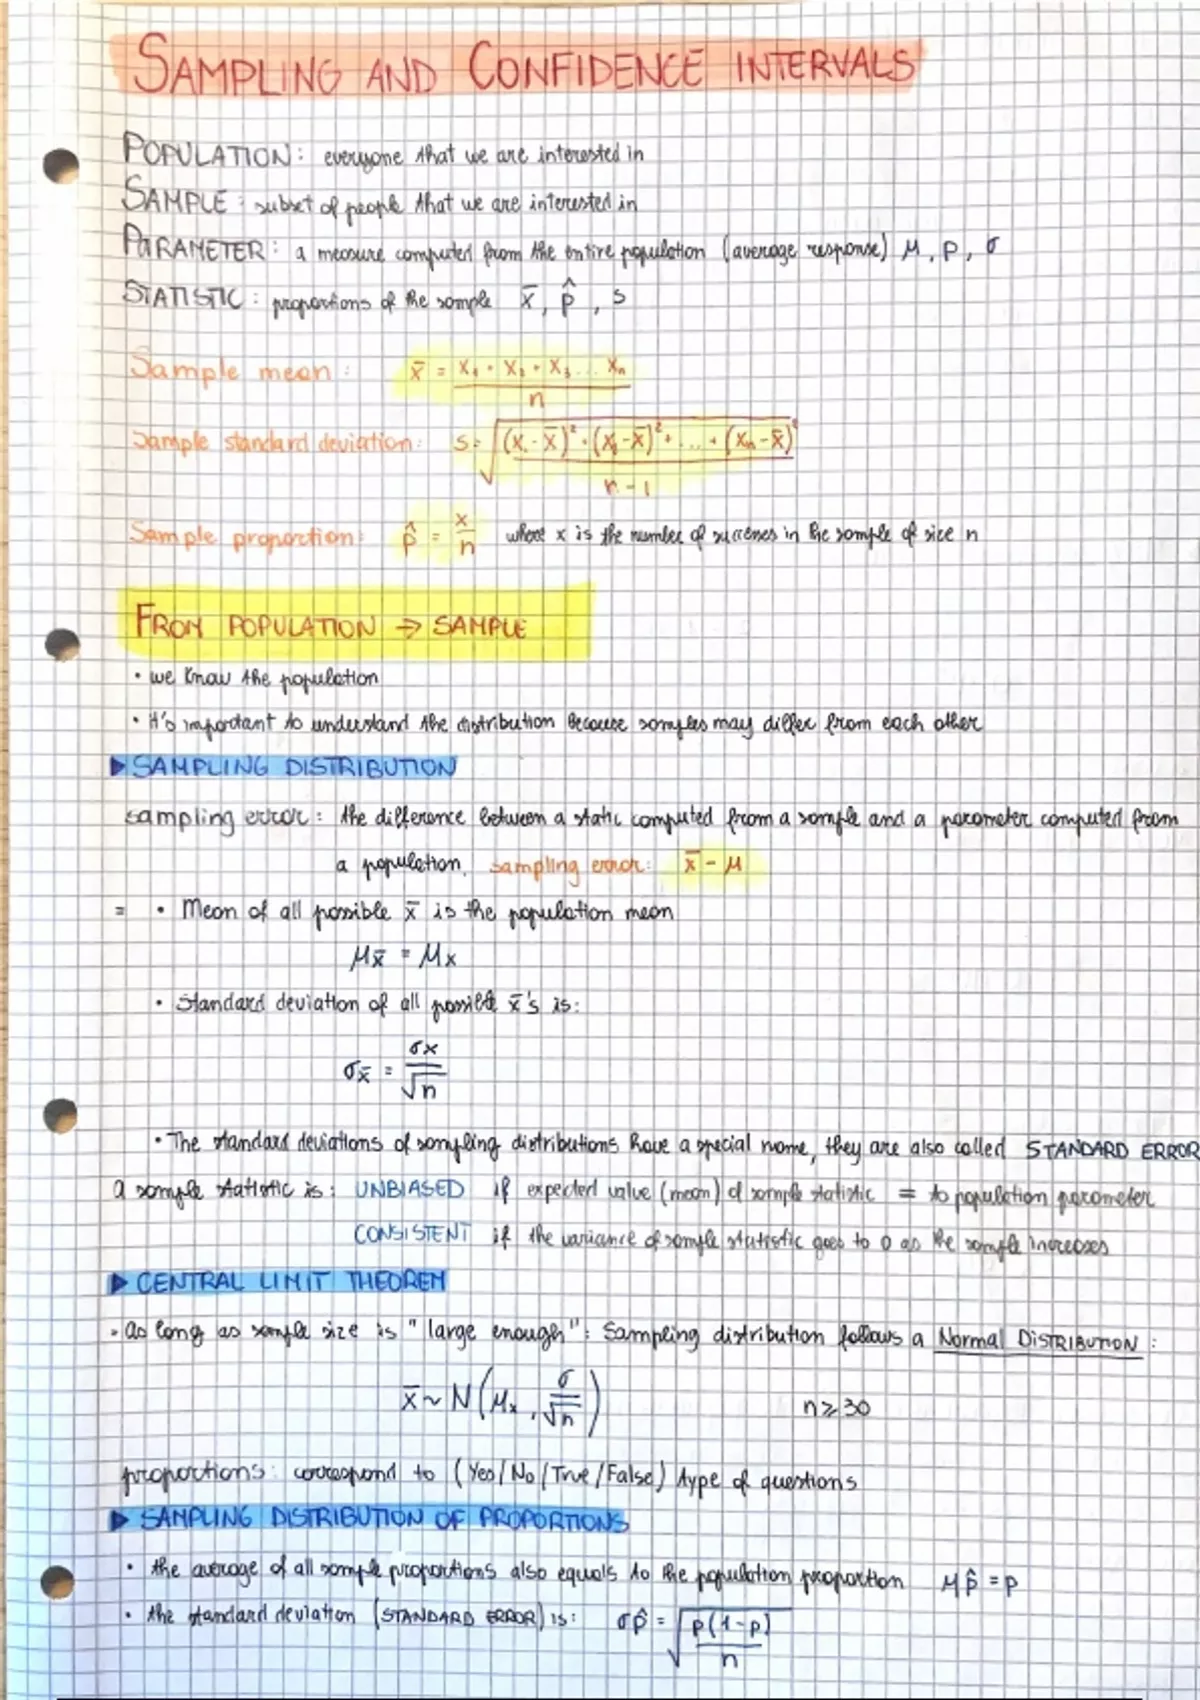 SAMPLING AND CONFIDENCE INTERVALS
POPULATION: everyone that we are interested in
SAMPLE: subset of people that we are interested in
PARAMETER: a measure computed from the entire population (average response) μ, p, σ
STATISTIC: proportions of the sample x̄, p̂, s
Sample mean: x̄ = (x₁ + x₂ + x₃ ... xₙ) / n
Sample standard deviation: s = √((x₁ - x̄)² + (x₂ - x̄)² + ... + (xₙ - x̄)² / n - 1)
Sample proportion: p̂ = x/n where x is the number of successes in the sample of size n
FROM POPULATION → SAMPLE
• we know the population
• it's important to understand the distribution because samples may differ from each other
▶ SAMPLING DISTRIBUTION
sampling error: the difference between a static computed from a sample and a parameter computed from
a population. sampling error: x̄ - μ
= • Mean of all possible x̄ is the population mean
μx̄ = μx
• Standard deviation of all possible x̄'s is:
σx̄ = σx / √n
• The standard deviations of sampling distributions have a special name, they are also called STANDARD ERROR
a sample statistic is: UNBIASED if expected value (mean) of sample statistic = to population parameter
CONSISTENT if the variance of sample statistic goes to 0 as the sample increases
▶ CENTRAL LIMIT THEOREM
- as long as sample size is "large enough": Sampling distribution follows a Normal DISTRIBUTION:
x̄ ~ N(μx, σ/√n) n ≥ 30
proportions: correspond to (Yes/No/True/False) type of questions
▶ SAMPLING DISTRIBUTION OF PROPORTIONS
• the average of all sample proportions also equals to the population proportion μp̂ = p
• the standard deviation (STANDARD ERROR) is: σp̂ = √(p(1-p) / n)